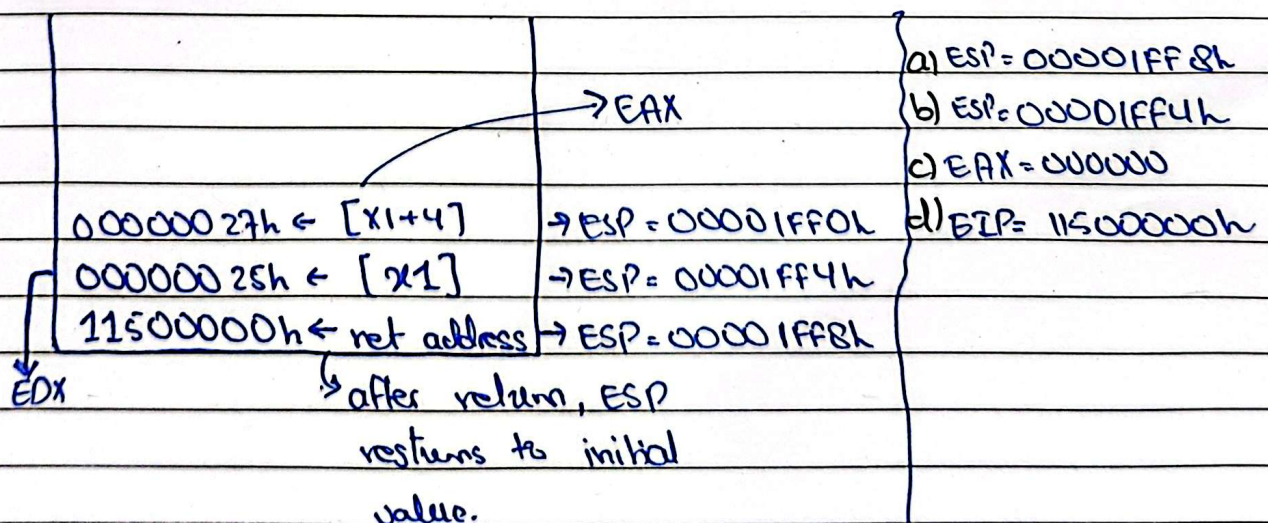 → EAX
00000027h ← [x1+4] → ESP = 00001FF0h
00000025h ← [x1] → ESP = 00001FF4h
11500000h ← ret address → ESP = 00001FF8h
EDX
↳ after return, ESP
resturns to initial
value.
a) ESP = 00001FF8h
b) ESP = 00001FF4h
c) EAX = 000000
d) EIP = 11500000h